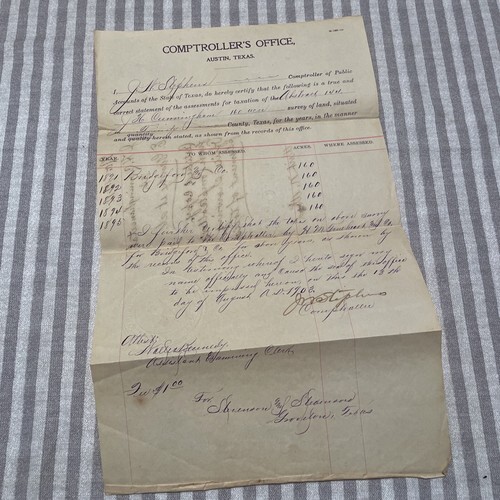 COMPTROLLER'S OFFICE,
AUSTIN, TEXAS.
I, J W Stephens Comptroller of Public
Accounts of the State of Texas, do hereby certify that the following is a true and
correct statement of the assessments for taxation of the Abstract
Cunningham 160 acre survey of land, situated
County, Texas, for the years, in the manner
and quality herein stated, as shown from the records of this office.
YEAR TO WHOM ASSESSED. ACRES. WHERE ASSESSED.
1891 & Co. 160
1892 160
1893 160
1894 160
1895 160
I further certify that the taxes on above survey
were paid to the Comptroller by H. M.
for & Co. for above years as shown by
the records of this office.
In testimony whereof I hereto sign my
name officially and caused the seal of this office
to be impressed hereon, on this the 13th
day of August, A.D. 1903.
J W Stephens
Comptroller
Attest:
Kennedy
Clerk
Fee $1.00
For
&
Texas